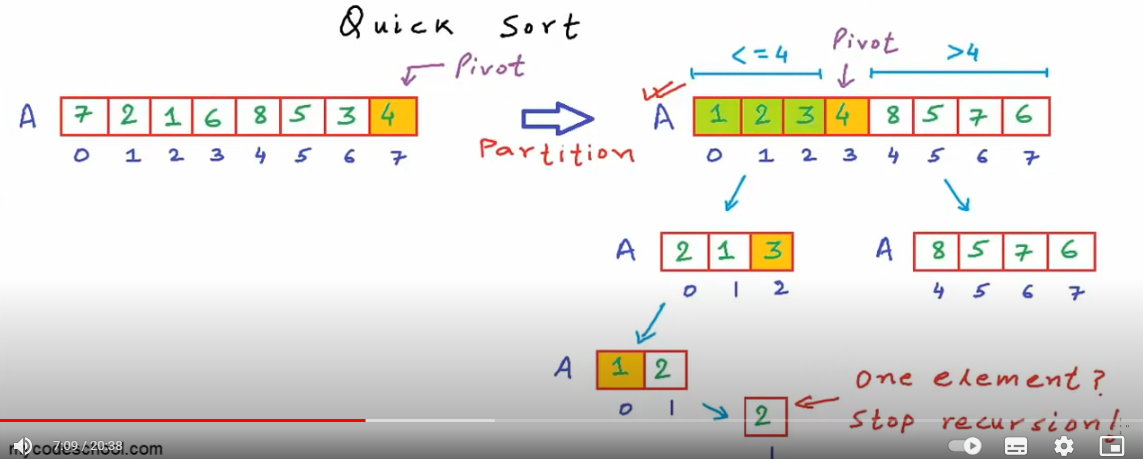 Quick Sort
Pivot
A 7 2 1 6 8 5 3 4
0 1 2 3 4 5 6 7
Partition
<=4 Pivot >4
A 1 2 3 4 8 5 7 6
0 1 2 3 4 5 6 7
A 2 1 3
0 1 2
A 8 5 7 6
4 5 6 7
A 1 2
0 1
2
1
One element?
Stop recursion!
7:09 / 20:38
mycodeschool.com